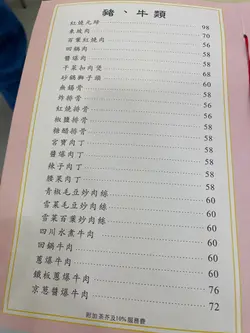 豬、牛類
紅燒元蹄 98
東坡肉 70
百葉紅燒肉 56
回鍋肉 56
醬爆肉 58
干菜扣肉煲 68
砂鍋獅子頭 60
無錫骨 58
炸排骨 56
紅燒排骨 56
椒鹽排骨 58
糖醋排骨 58
宮寶肉丁 58
醬爆肉丁 58
辣子肉丁 58
腰果肉丁 58
青椒毛豆炒肉絲 60
雪菜毛豆炒肉絲 60
雪菜百葉炒肉絲 60
四川水煮牛肉 60
回鍋牛肉 60
蔥爆牛肉 60
鐵板蔥爆牛肉 76
京蔥醬爆牛肉 72
附加茶芥及10%服務費